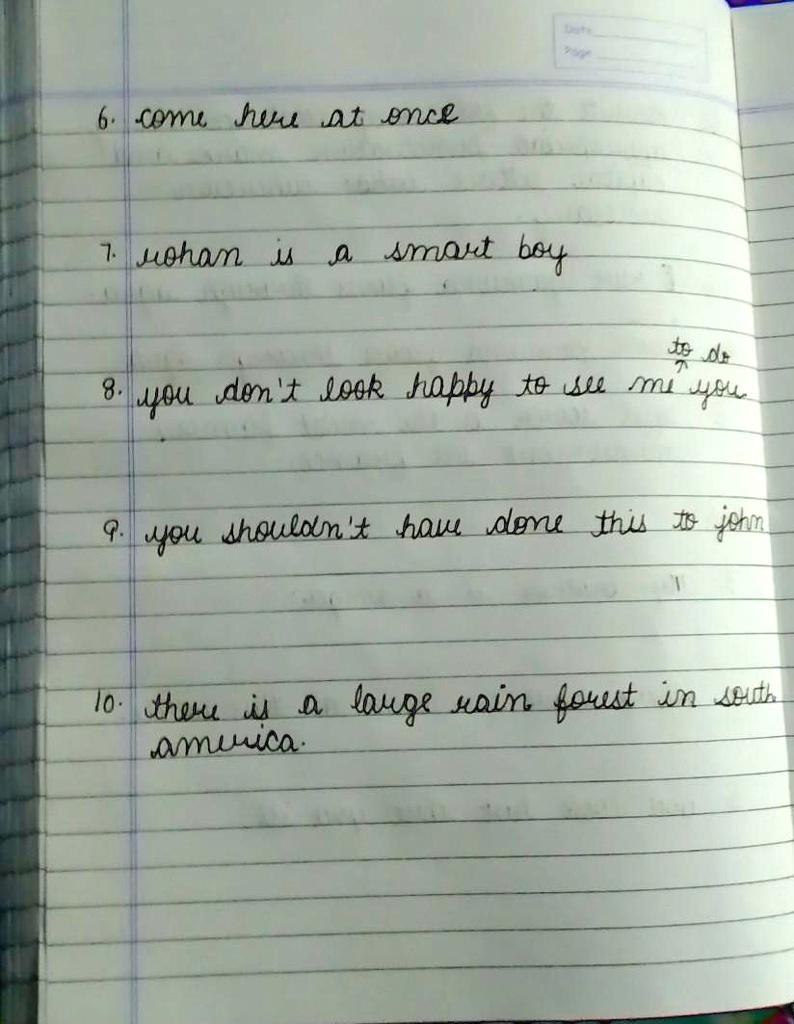 Date
Page
6. come here at once
7. rohan is a smart boy
to do
8. you don't look happy to see me you
9. you shouldn't have done this to john
10. there is a large rain forest in south
america.